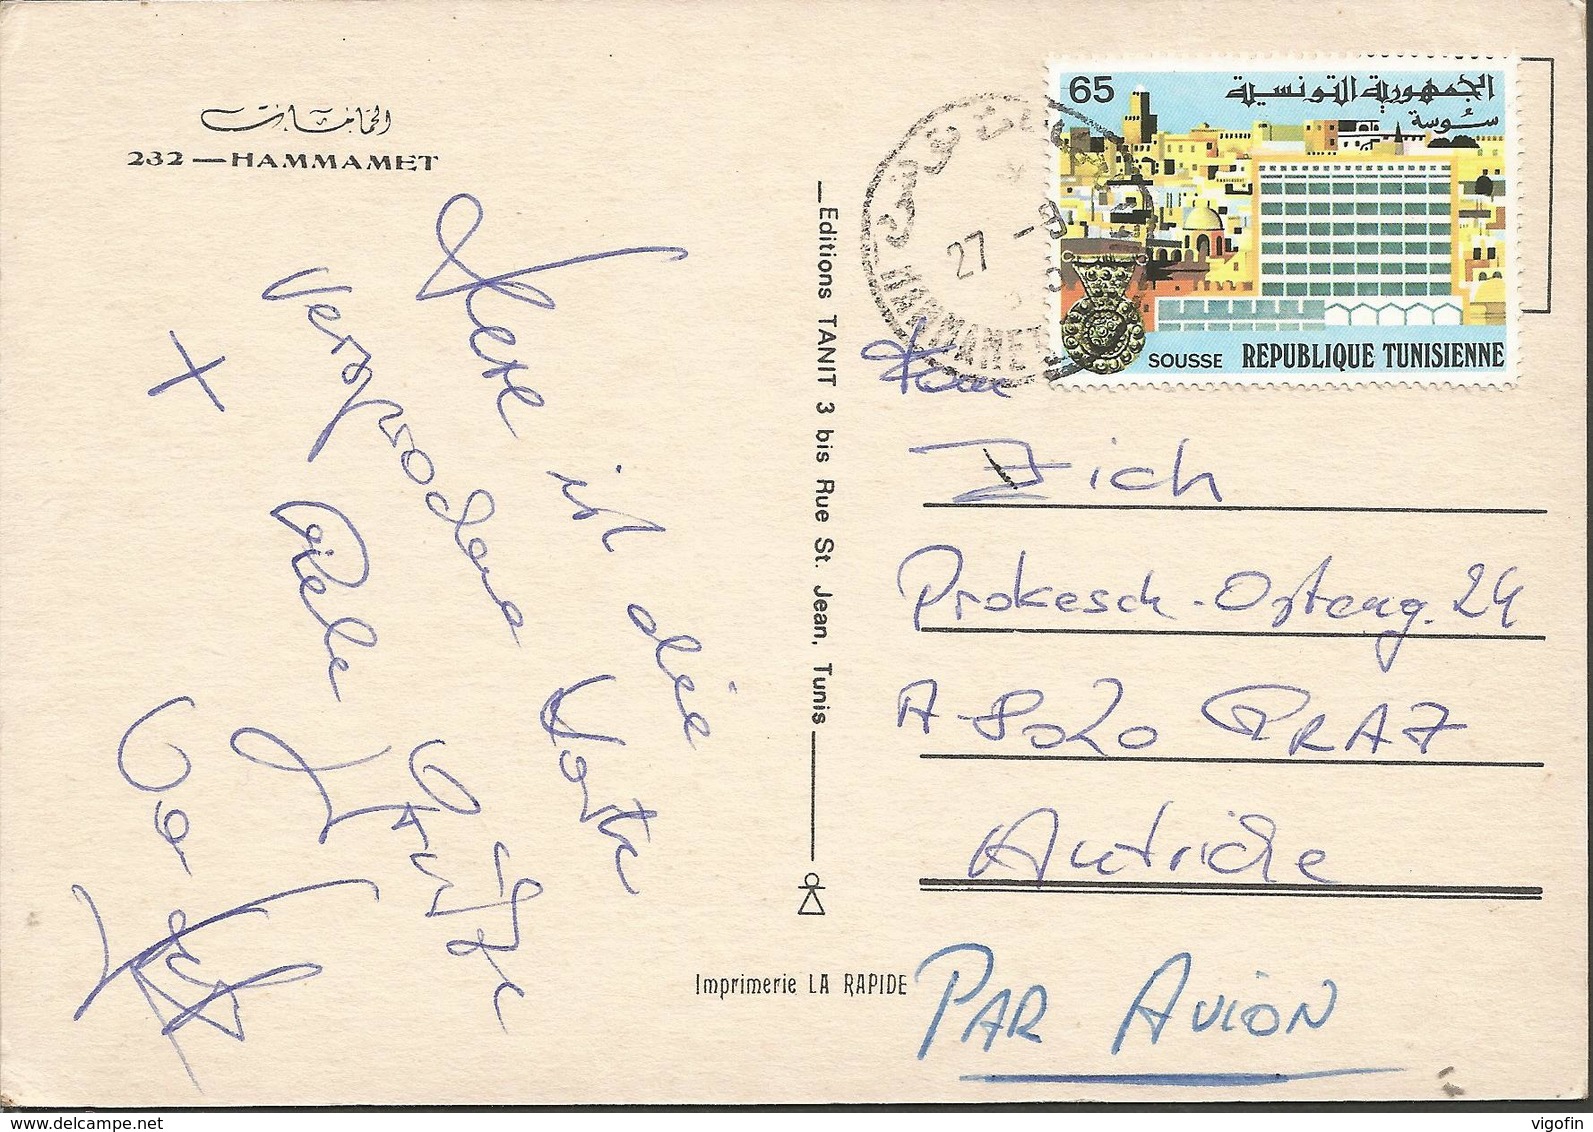 الحمامات
232 — HAMMAMET
Hier ist die
versprochene Karte
Viele
Editions TANIT 3 bis Rue St. Jean, Tunis
Imprimerie LA RAPIDE
65
الجمهورية التونسية
سوسة
SOUSSE REPUBLIQUE TUNISIENNE
27 -8
HAMMAMET
Zich
Prokesch-Osteng. 24
A-8020 GRAZ
Autriche
PAR AVION
vigofin